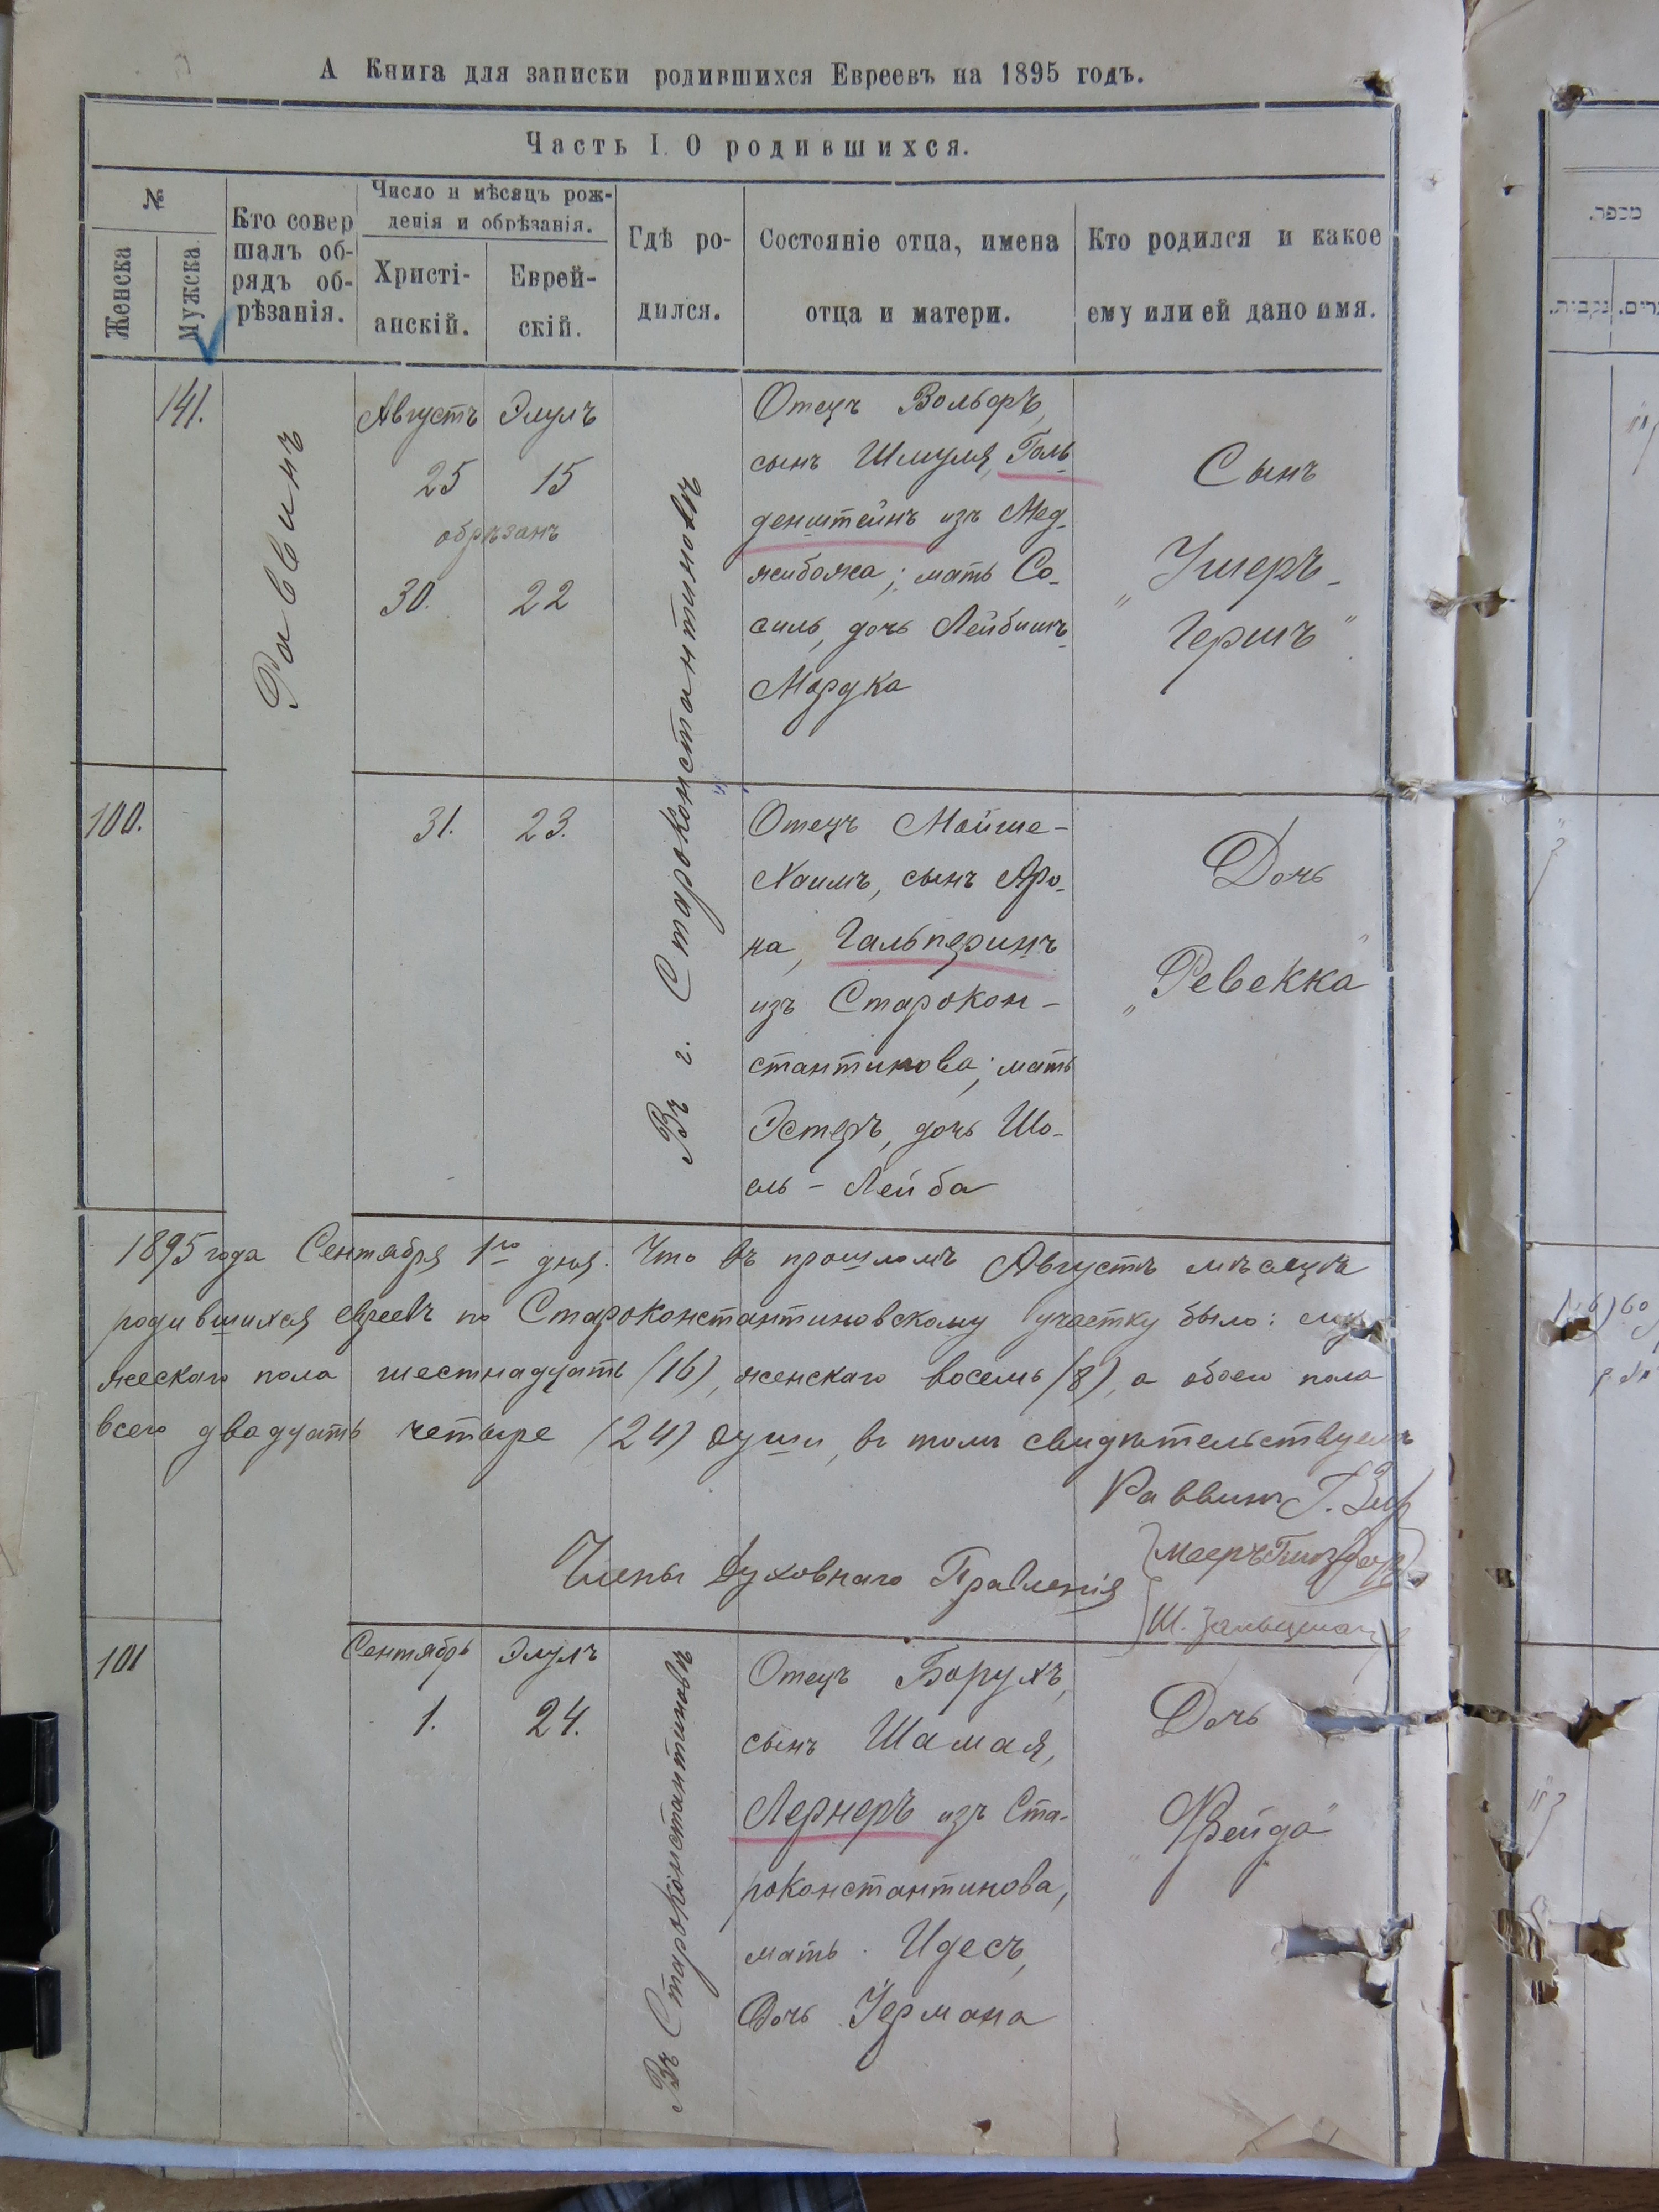 А Книга для записки родившихся Евреевъ на 1895 годъ.
Часть I. О родившихся.
№
Женска
Мужска
Кто совер
шалъ об-
рядъ об-
рѣзанія.
Число и мѣсяцъ рож-
денія и обрѣзанія.
Христі-
анскій.
Еврей-
скій.
Гдѣ ро-
дился.
Состояніе отца, имена
отца и матери.
Кто родился и какое
ему или ей дано имя.
141.
Раввинъ
Августъ Элулъ
25 15
обрѣзанъ
30. 22
Въ г. Староконстантиновѣ
Отецъ Вольфъ,
сынъ Шмуля, Голь
денштейнъ изъ Мед-
жибожа; мать Со-
силь, дочь Лейбишъ-
Мордка
Сынъ
"Ушеръ-
Гершъ"
100.
31. 23.
Отецъ Мойше-
Хаимъ, сынъ Аро-
на, Гальперинъ
изъ Старокон-
стантинова; мать
Эстеръ, дочь Шо-
ель-Лейба
Дочь
"Ревекка"
1895 года Сентября 1го дня. Что въ прошломъ Августѣ мѣсяцѣ
родившихся евреевъ по Староконстантиновскому участку было: муж
жескаго пола шестнадцать (16), женскаго восемь (8), а обоего пола
всего двадцать четыре (24) души, въ томъ свидѣтельствуемъ
Раввинъ Г.
Члены Духовнаго Правленія
Мееръ
Ш. Зальцман
101
Сентябрь Элулъ
1. 24.
Въ Староконстантиновѣ
Отецъ Борухъ,
сынъ Шамая,
Лернеръ изъ Ста-
роконстантинова,
мать Идесъ,
Дочь Германа
Дочь
"Фейга"
מספר.
נקבות.